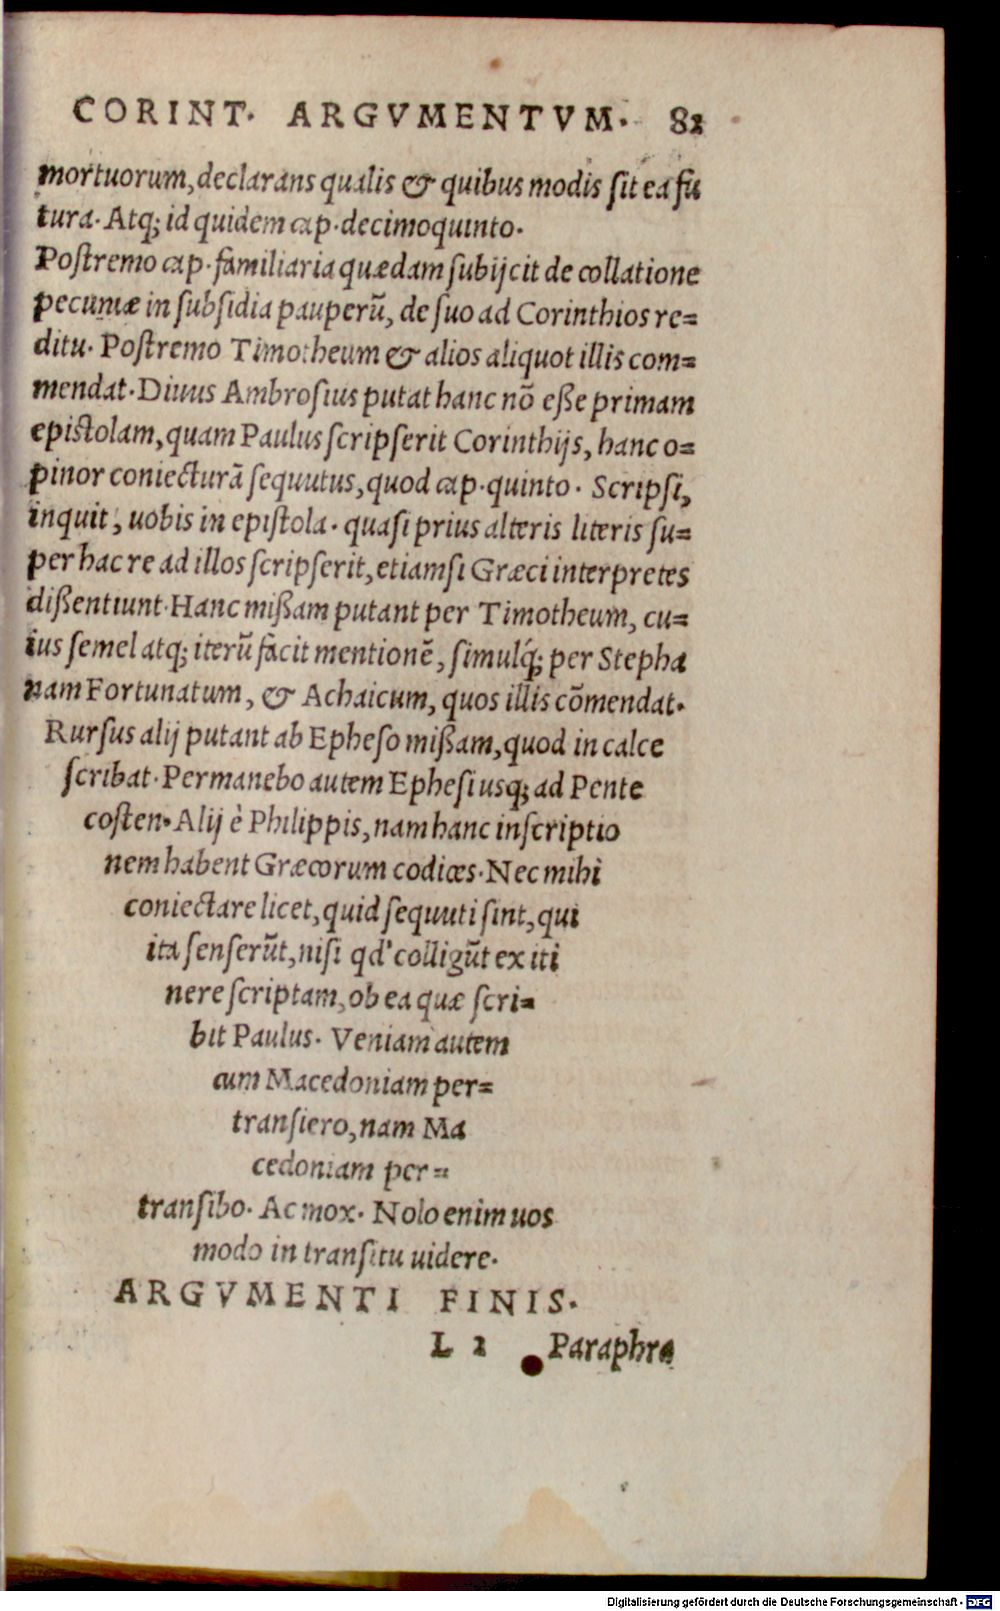 CORINT. ARGVMENTVM. 82
mortuorum, declarans qualis & quibus modis ſit ea fu
tura. Atq; id quidem cap. decimoquinto.
Poſtremo cap. familiaria quædam ſubijcit de collatione
pecuniæ in ſubſidia pauperū, de ſuo ad Corinthios re=
ditu. Poſtremo Timotheum & alios aliquot illis com=
mendat. Diuus Ambroſius putat hanc nō eße primam
epiſtolam, quam Paulus ſcripſerit Corinthijs, hanc o=
pinor coniecturā ſequutus, quod cap. quinto. Scripſi,
inquit, uobis in epiſtola. quaſi prius alteris literis ſu=
per hac re ad illos ſcripſerit, etiamſi Græci interpretes
dißentiunt. Hanc mißam putant per Timotheum, cu=
ius ſemel atq; iterū facit mentionē, ſimulq́; per Stepha
nam Fortunatum, & Achaicum, quos illis cōmendat.
Rurſus alij putant ab Epheſo mißam, quod in calce
ſcribat. Permanebo autem Epheſi usq; ad Pente
coſten. Alij è Philippis, nam hanc inſcriptio
nem habent Græcorum codices. Nec mihi
coniectare licet, quid ſequuti ſint, qui
ita ſenſerūt, niſi qd' colligūt ex iti
nere ſcriptam, ob ea quæ ſcri=
bit Paulus. Veniam autem
cum Macedoniam per=
tranſiero, nam Ma
cedoniam per=
tranſibo. Ac mox. Nolo enim uos
modo in tranſitu uidere.
ARGVMENTI FINIS.
L 2 Paraphra
Digitalisierung gefördert durch die Deutsche Forschungsgemeinschaft - DFG